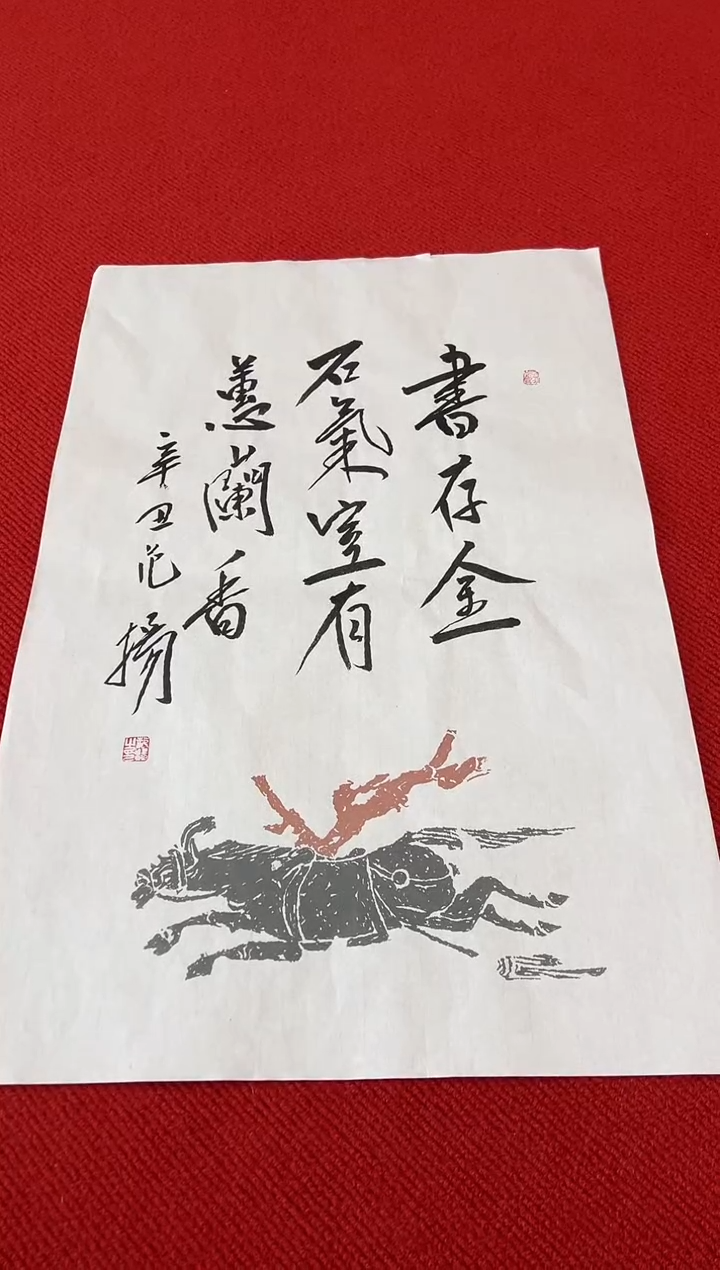 書存金
石氣室有
蕙蘭香
辛丑范揚